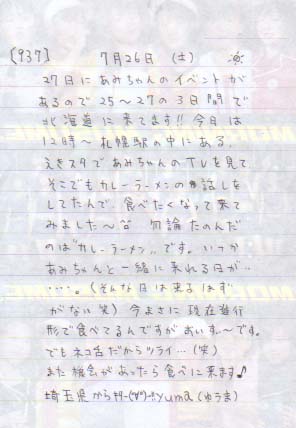 [937] 7月26日 (土) ☀
27日にあみちゃんのイベントが
あるので25〜27の3日間で
北海道に来てます!! 今日は
12時〜札幌駅の中にある、
えきスタであみちゃんのTVを見て
そこでもカレーラーメンの話しを
してたんで、食べたくなって来て
みました〜^^ 勿論たのんだ
のは"カレーラーメン"です。いつか
あみちゃんと一緒に来れる日が‥
‥‥。(そんな日は来るはず
がない 笑) 今まさに現在進行
形で食べてるんですがおいすぃ〜です。
でもネコ舌だからツライ…(笑)
また機会があったら食べに来ます♪
埼玉県からｷﾀ-(ﾟ∀ﾟ)-!! yuma (ゆうま)